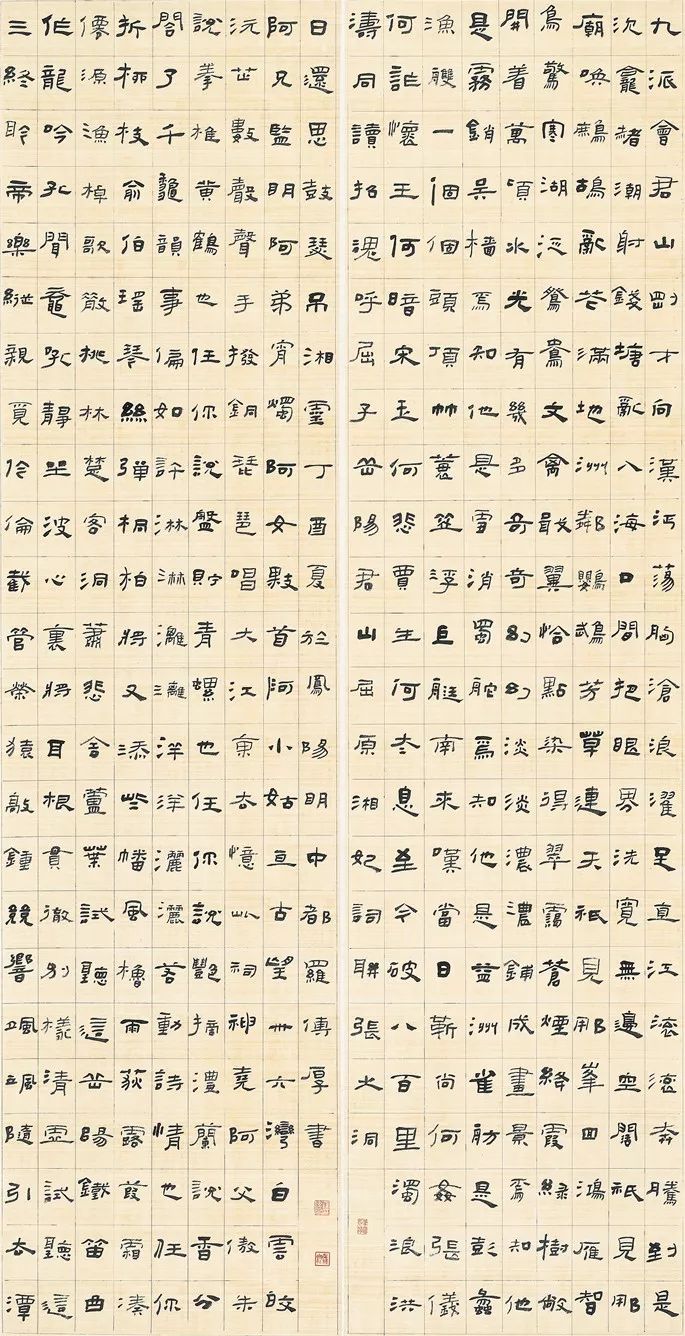 九派會君山剛才向漢沔蕩胸滄浪濯足直江滾滾奔騰到是
沉龕赭潮射錢塘亂入海口間把眼界洗寬無邊空闊祇見那
廟喚鷓鴣亂芒滿地洲鄰鸚鵡芳草連天祇見那峯回鴻雁智
鳥驚寒湖泛鴛鴦文禽戢翼恰點染得翠靄蒼煙絳霞綠樹敞
開着萬頃水光有幾多奇奇幻幻淡淡濃濃鋪成畫景焉知他
是霧銷吳檣焉知他是雪消蜀舵焉知他是益洲雀舫是彭蠡
漁艭一個個頭頂竹蓑笠浮巨艇南來嘆當日靳尚何姦張儀
何詐懷王何暗宋玉何悲賈生何太息至今破八百里濁浪洪
濤同讀招魂呼屈子岳陽君山屈原湘妃詞聯張之洞
三終聆帝樂縱親覓伶倫截管榮猿敲鐘競響颯颯隨引去潭
作龍吟孔聞鼉吼靜坐波心裏將耳根貫徹別樣清靈試聽這
僊源漁棹歌散桃林楚客洞蕭悲含蘆葉試聽這岳陽鐵笛曲
折柳枝俞伯瑤琴絲彈桐柏將又添些幡風櫓雨荻露葭霜湊
閤了千龜韻事偏如許淋淋漓漓洋洋灑灑客動詩情也任你
說拳椎黃鶴也任你說盤貯青螺也任你說艷摘澧蘭說香分
沅芷數聲聲手撥銅琵琶唱大江東去憶此祠神堯阿父傲朱
阿兄監明阿弟宵燭阿女敤首阿小姑亙古望卅六灣白雲皎
日還思鼓瑟吊湘靈丁酉夏於鳳陽明中都羅傅厚書